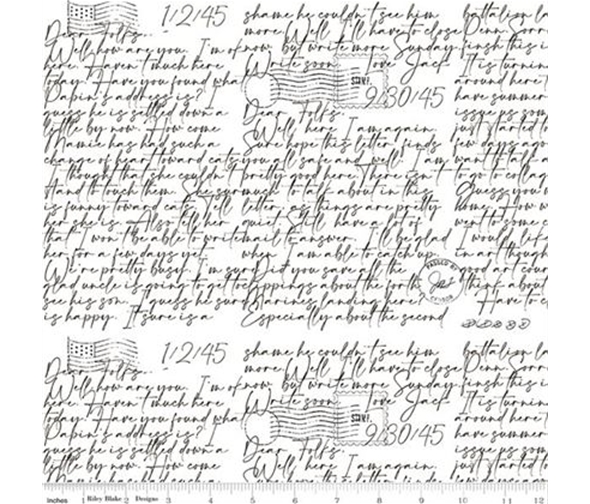 1/2/45
Dear Folks,
Well, how are you. I'm of
here. Haven't much here
today. Have you found wha
Papin's address is? I
guess he is settled down a
little by now. How come
Mamie has had such a
change of heart toward cats
I thought that she couldn't
stand to touch them. She sur
is funny toward cats. Tell
her she is. Also tell her
that I won't be able to write
her for a few days yet.
We're pretty busy. I'm sur
glad uncle is going to get to
see his son. I guess he sure
is happy. It sure is a
shame he couldn't see him
more. Well I'll have to close
now but write more Sunday.
Write soon. Love Jack
9/30/45
Dear Folks
Well here I am again.
Sure hope this letter finds
you all safe and well! I am
pretty good here. There isn't
much to talk about in this
letter, as things are pretty
quiet. Still have a lot of
mail to answer. I'll be glad
when I am able to catch up.
Did you save all the
clippings about the forth
Marines landing here?
Especially about the second
battalion la
Penn. Sorr
finish this i
It is turnin
around here t
have summer
issue ps som
just started to
few days ago
want to talk a
to go to colleg
Guess you'v
home. How w
went to some c
I would lif
in art though
good art cour
think about
Have to c
PASSED BY
1/2/45
Dear Folks,
Well, how are you. I'm of
here. Haven't much here
today. Have you found wha
Papin's address is? I
guess he is settled down a
little by now. How come
Mamie has had such a
shame he couldn't see him
more. Well I'll have to close
now but write more Sunday.
Write soon. Love Jack
9/30/45
Dear Folks
Well here I am again.
Sure hope this letter finds
battalion la
Penn. Sorr
finish this i
It is turnin
around here t
have summer
issue ps som
just started to
few days ago
Inches 1 Riley Blake 2 Designs 3 4 5 6 7 8 9 10 11 12